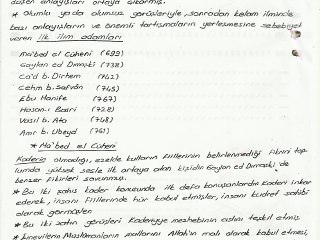 düşen anlayışları ortaya çıkarmış.
* Olumlu yada olumsuz görüşleriyle, sonradan kelam ilminde
bazı anlayışların ve önemli tartışmaların yerleşmesine sebebiyet
veren ilk ilim adamları
Ma'bed el Cüheni (699)
Gaylan ed Dımışki (738)
Ca'd b. Dirhem (742)
Cehm b. Safvân (745)
Ebu Hanife (767)
Hasan-ı Basri (728)
Vasıl b. Ata (748)
Amr b. Ubeyd (761)
* Ma'bed el Cüheni
Kaderin olmadığı, ezelde kulların fiillerinin belirlenmediği fikrini top
lumda yüksek sesle ilk ortaya atan kişidir. Gaylan ed Dımışki de
benzer fikirleri savunmuş.
* Bu iki şahıs kader konusunda ilk defa konuşanlardır. Kaderi inkar
ederek, insanı fiillerinde hür kabul etmişler, insanı kudret sahibi
olarak görmüşler.
* Bu iki zatın görüşleri Kaderiyye mezhebinin aslını teşkil etmiş.
* Emevilerin Müslümanların mallarını Allah'ın malı olarak kabul etmesi,